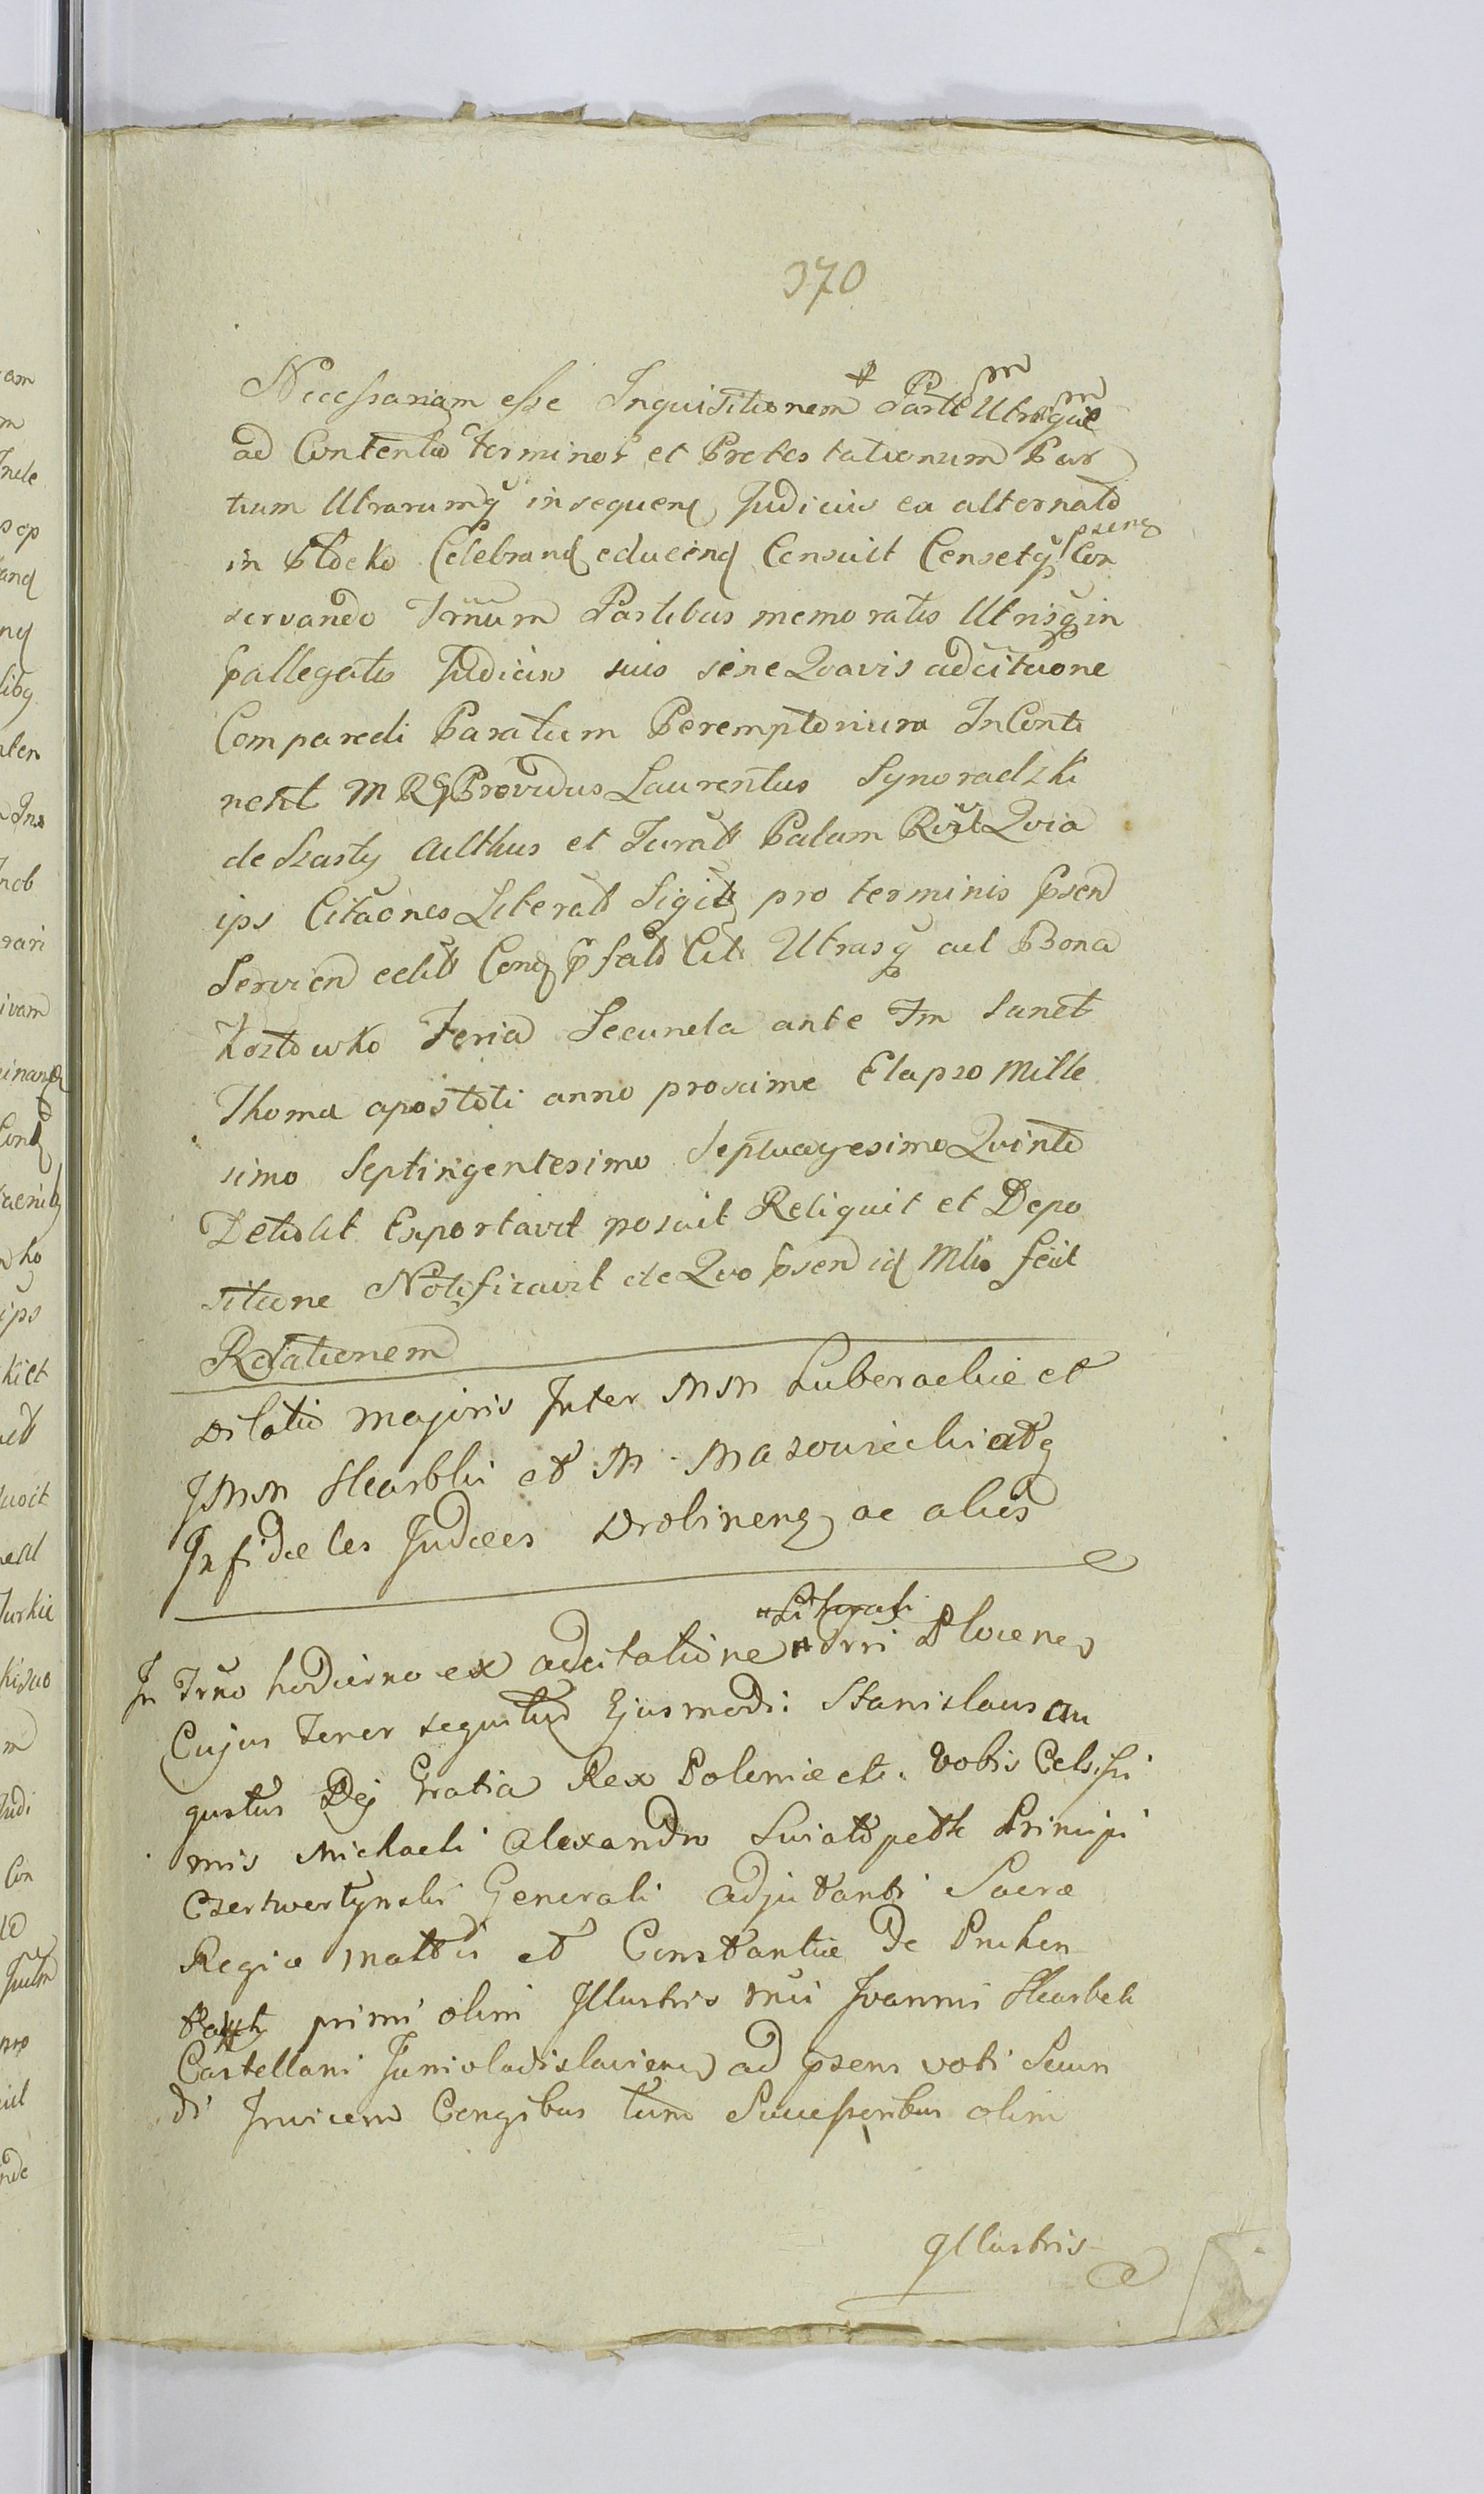 370
Necessariam esse Inquisitionem p Partem Utramque
ad Contenta Terminor et Protestationum Par
tium Utrarumq insequen Judiciis ea alternato
in Plocko Celebrand educend Censuit Censetq psens Con
servando Trnum Partibus memoratis Utrisq in
pallegatis Judiciis suis sine Quavis adcitaone
Comparedi Paratum Peremptorium InConti
nent M R Providus Laurentius Synoradzki
de Szasty authus et Juratt Palam Rvit Quia
ips Citaones Literatt Sigitt pro terminis psen
Servien editt Conq psato Citt Utrasq ad Bona
Kozłowko Feria Secunda ante Fm Sanct
Thoma apostoli anno proxime Elapso Mille
simo Septingentesimo Septuagesimo Quinto
Detulit Exportavit posuit Reliquit et Depo
sitione Notificavit de Quo psen id Mlis fecit
Relationem
Dilatio majoris Inter MM Luberachie et
JMM Skarbki et M Mazowiecki atq
Infideles Judaeos Drobinens ac alios
In Trno hodierno ex adcitatione Literali Trri Plocens
Cujus tenor sequitur Ejusmodi: Stanislaus au
gustus Dej Gratia Rex Poloniae etc. Vobis Celsissi
mis Michaeli Alexandro Swiatopełk Principi
Czertwertynski Generali Adjutanti Sacrae
Regiae Mattis et Constantiae De
primi olim Illustris Mci Joannis Skarbek
Castellani Juniwladislaviens ad psens voti Secun
di Invicem Congibus tum Successoribus olim
Illustris